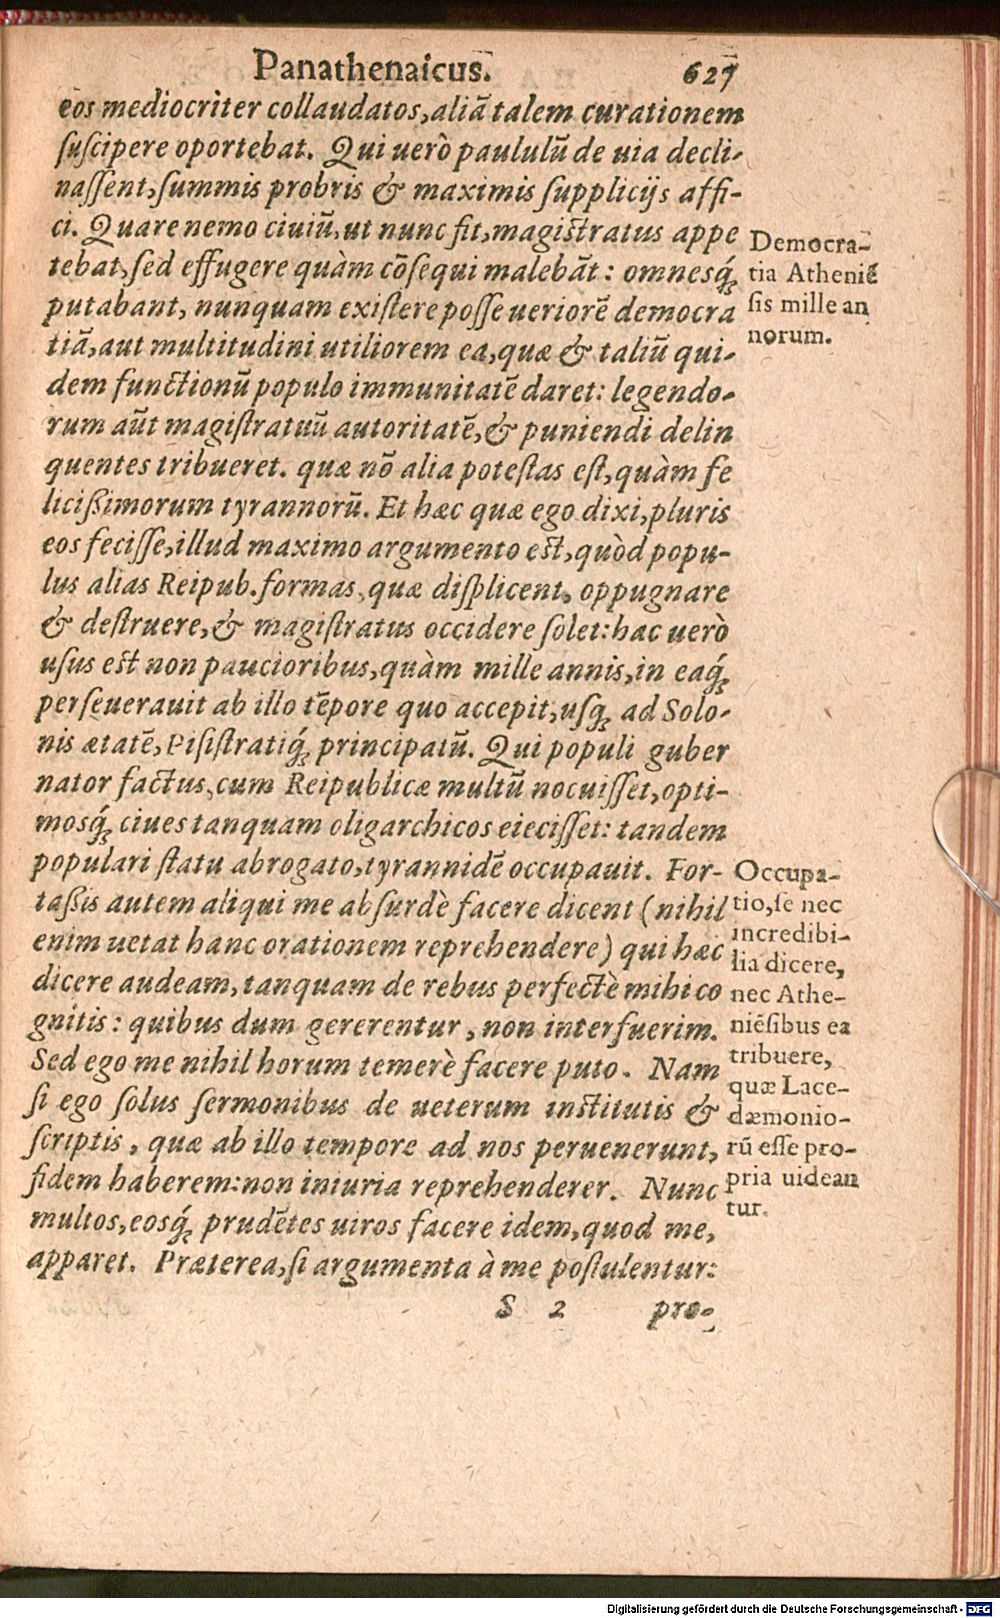 Panathenaicus. 627
eos mediocriter collaudatos, aliã talem curationem
ſuſcipere oportebat. Qui uerò paululũ de uia decli-
naſſent, ſummis probris & maximis ſupplicijs affi-
ci. Quare nemo ciuiũ, ut nunc fit, magiſtratus appe
tebat, ſed effugere quàm cõſequi malebãt: omnesq́;
putabant, nunquam exiſtere poſſe ueriorẽ democra
tiã, aut multitudini utiliorem ea, quæ & taliũ qui-
dem functionũ populo immunitatẽ daret: legendo-
rum aũt magiſtratuũ autoritatẽ, & puniendi delin
quentes tribueret. quæ nõ alia poteſtas eſt, quàm fe
licißimorum tyrannorũ. Et hæc quæ ego dixi, pluris
eos feciſſe, illud maximo argumento eſt, quòd popu-
lus alias Reipub. formas, quæ diſplicent, oppugnare
& deſtruere, & magiſtratus occidere ſolet: hac uerò
uſus eſt non paucioribus, quàm mille annis, in eaq́;
perſeuerauit ab illo tẽpore quo accepit, uſq; ad Solo-
nis ætatẽ, Piſiſtratiq́; principatũ. Qui populi guber
nator factus, cum Reipublicæ multũ nocuiſſet, opti-
mosq́; ciues tanquam oligarchicos eieciſſet: tandem
populari ſtatu abrogato, tyrannidẽ occupauit. For-
taßis autem aliqui me abſurdè facere dicent (nihil
enim uetat hanc orationem reprehendere) qui hæc
dicere audeam, tanquam de rebus perfectè mihi co
gnitis: quibus dum gererentur, non interfuerim.
Sed ego me nihil horum temerè facere puto. Nam
ſi ego ſolus ſermonibus de ueterum inſtitutis &
ſcriptis, quæ ab illo tempore ad nos peruenerunt,
fidem haberem: non iniuria reprehenderer. Nunc
multos, eosq́; prudẽtes uiros facere idem, quod me,
apparet. Præterea, ſi argumenta à me poſtulentur:
S 2 pro-
Democra-
tia Atheniẽ
ſis mille an
norum.
Occupa-
tio, ſe nec
incredibi-
lia dicere,
nec Athe-
niẽſibus ea
tribuere,
quæ Lace-
dæmonio-
rũ eſſe pro-
pria uidean
tur.
Digitalisierung gefördert durch die Deutsche Forschungsgemeinschaft - DFG